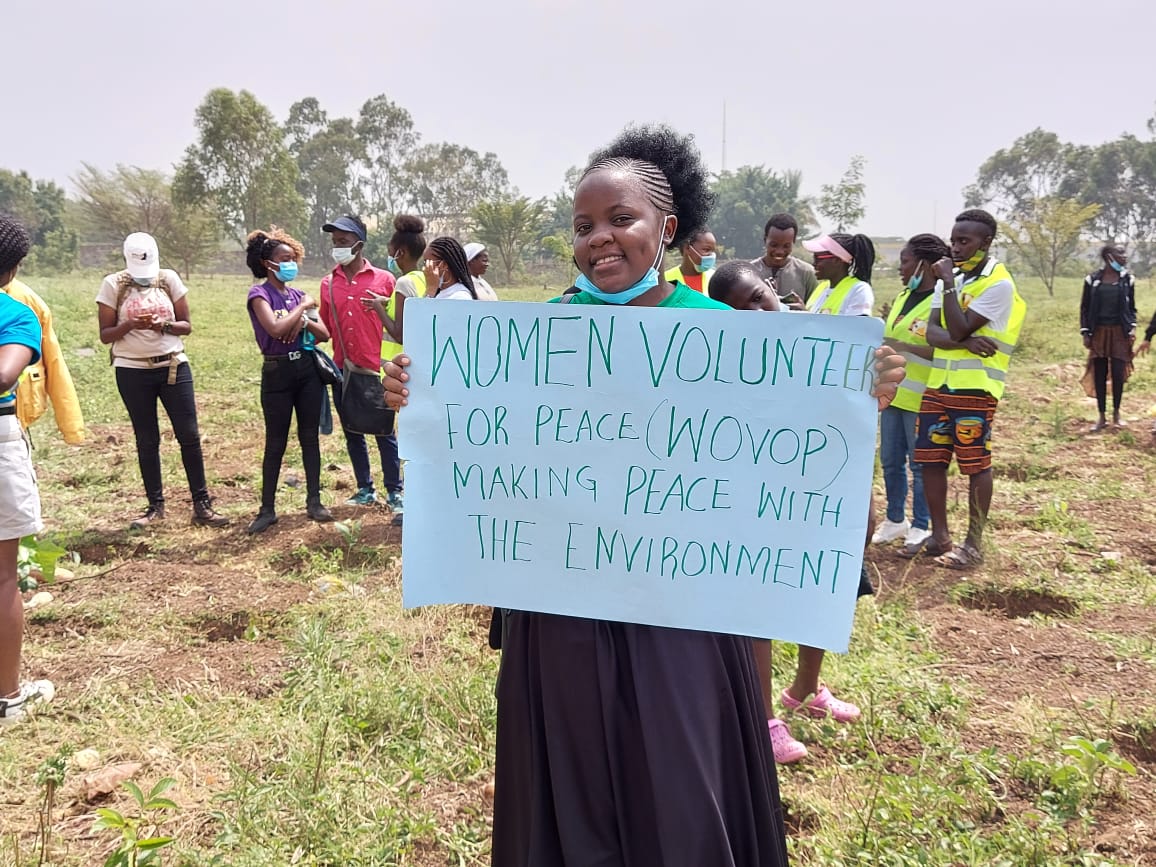 WOMEN VOLUNTEER
FOR PEACE (WOVOP)
MAKING PEACE WITH
THE ENVIRONMENT